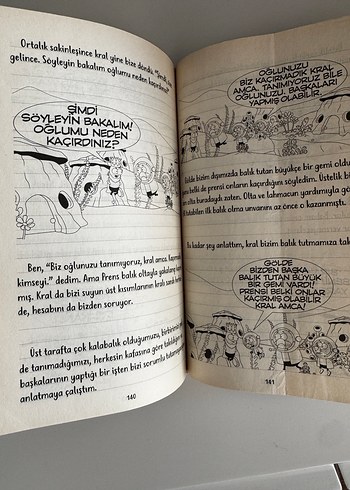 Ortalık sakinleşince kral yine bize döndü. "Şimdi,
gelince. Söyleyin bakalım oğlumu neden
ŞİMDİ
SÖYLEYİN BAKALIM!
OĞLUMU NEDEN
KAÇIRDINIZ?
Ben, "Biz oğlunuzu tanımıyoruz, kral amca.
kimseyi." dedim. Ama Prens balık oltayla yakalanıp
mış. Kral da bizi suyun üst kısımlarının kralı
de, hesabını da bizden soruyor.
Üst tarafta çok kalabalık olduğumuzu, birbirimizi
de tanımadığımızı, herkesin kafasına göre takıldığını
başkalarının yaptığı bir işten bizi sorumlu
anlatmaya çalıştım.
140
OĞLUNUZU
BİZ KAÇIRMADIK KRAL
AMCA. TANIMIYORUZ BİLE
OĞLUNUZU. BAŞKALARI
YAPMIŞ OLABİLİR.
Gölde bizim dışımızda balık tutan büyükçe bir gemi
belki de prensi onların kaçırdığını söyledim. Üstelik
olta buradaydı zaten. Olta ve lahmacun yardımıyla
tutabilen ilk balık olma unvanını az önce o kazanmıştı.
kadar şey anlattım, kral bizim balık tutmamıza
GÖLDE
BİZDEN BAŞKA
BALIK TUTAN BÜYÜK
BİR GEMİ VARDI!
PRENSİ BELKİ ONLAR
KAÇIRMIŞ OLABİLİR
KRAL AMCA!
141